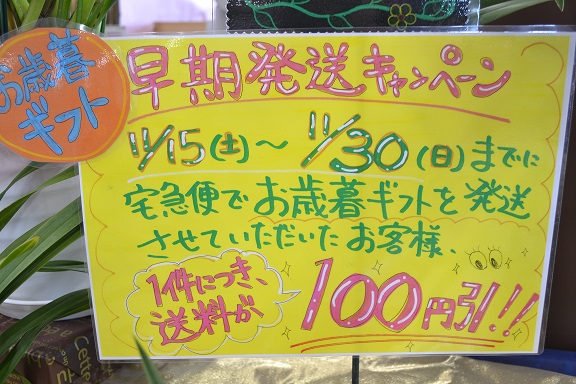 お歳暮
ギフト
早期発送キャンペーン
11/15(土)～11/30(日)までに
宅急便でお歳暮ギフトを発送
させていただいたお客様、
1件につき、
送料が
100円引!!